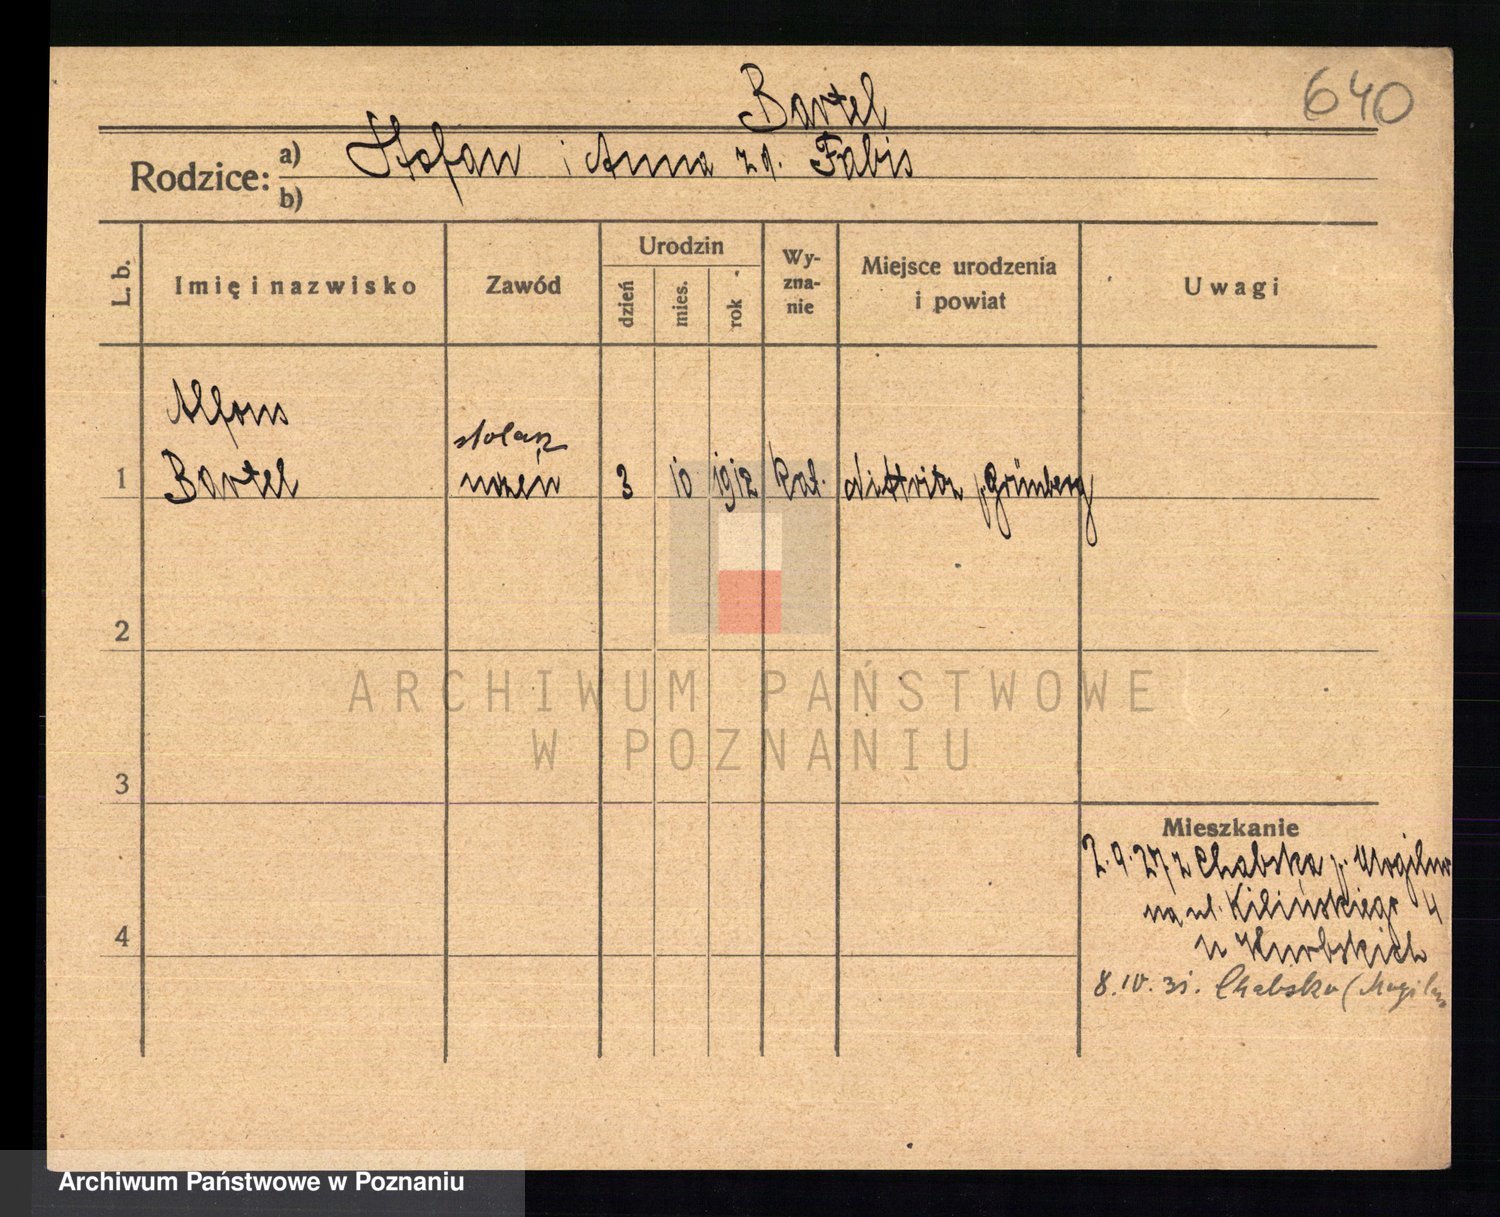 640
Bartel
Rodzice: a) Stefan i Anna zd. Fabis
b)
L. b. Imię i nazwisko Zawód Urodzin dzień mies. rok Wy-zna-nie Miejsce urodzenia i powiat Uwagi
Alfons
stolarz
1 Bartel uczeń 3 10 1912 kat. p. Grünberg
2
ARCHIWUM PAŃSTWOWE
W POZNANIU
3
Mieszkanie
2.9.27 z Chabska p. Mogilno
4 na ul. Kilińskiego 4
u Kurbskich
8.IV.31. Chabsko (Mogilno
Archiwum Państwowe w Poznaniu